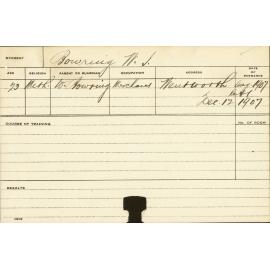 STUDENT Bowring W. J.
AGE RELIGION PARENT OR GUARDIAN OCCUPATION ADDRESS DATE OF ENTRANCE
23 Meth. W. Bowring Merchant Wentworth Aug 1907
Dec. 12 1907
COURSE OF TRAINING NO. OF ROOM
RESULTS